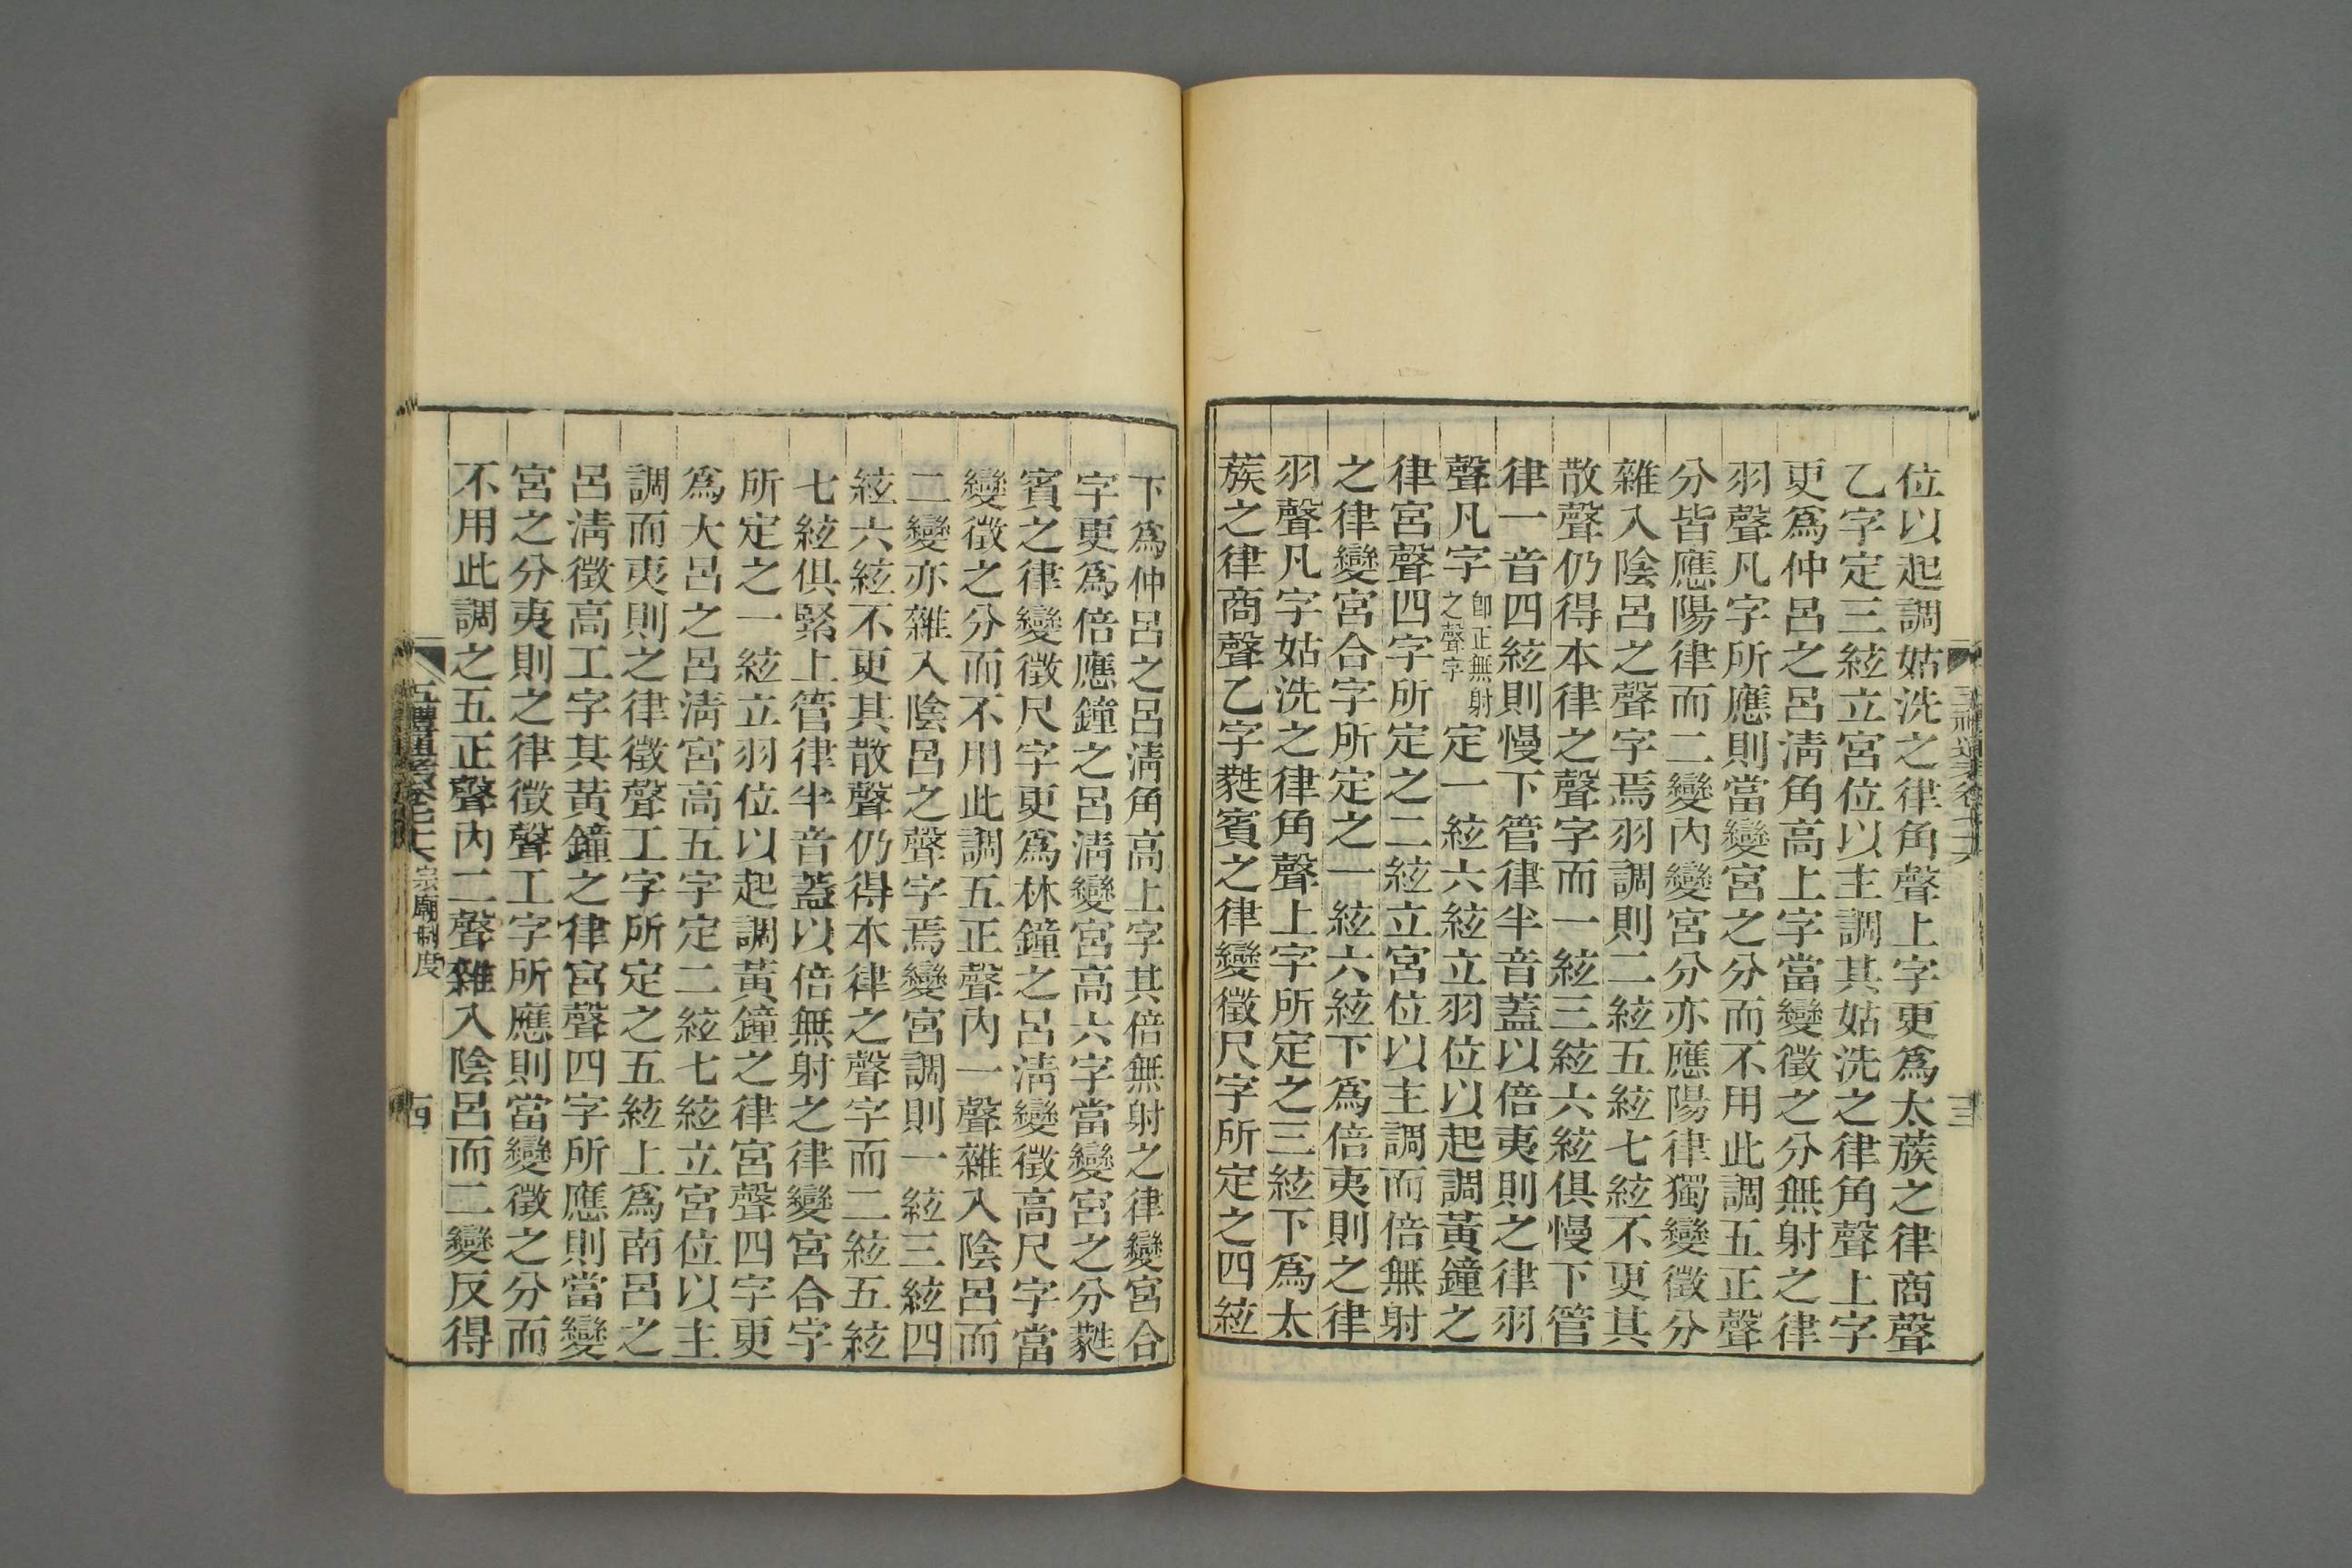 位以起調姑洗之律角聲上字更爲太蔟之律商聲
乙字定三絃立宮位以主調其姑洗之律角聲上字
更爲仲呂之呂淸角高上字當變徵之分無射之律
羽聲凡字所應則當變宮之分而不用此調五正聲
分皆應陽律而二變內變宮分亦應陽律獨變徵分
雜入陰呂之聲字焉羽調則二絃五絃七絃不更其
散聲仍得本律之聲字而一絃三絃六絃俱慢下管
律一音四絃則慢下管律半音蓋以倍夷則之律羽
聲凡字卽正無射之聲字定一絃六絃立羽位以起調黃鐘之
律宮聲四字所定之二絃立宮位以主調而倍無射
之律變宮合字所定之一絃六絃下爲倍夷則之律
羽聲凡字姑洗之律角聲上字所定之三絃下爲太
蔟之律商聲乙字蕤賓之律變徵尺字所定之四絃
下爲仲呂之呂淸角高上字其倍無射之律變宮合
字更爲倍應鐘之呂淸變宮高六字當變宮之分蕤
賓之律變徵尺字更爲林鐘之呂淸變徵高尺字當
變徵之分而不用此調五正聲內一聲雜入陰呂而
二變亦雜入陰呂之聲字焉變宮調則一絃三絃四
絃六絃不更其散聲仍得本律之聲字而二絃五絃
七絃俱緊上管律半音蓋以倍無射之律變宮合字
所定之一絃立羽位以起調黃鐘之律宮聲四字更
爲大呂之呂淸宮高五字定二絃七絃立宮位以主
調而夷則之律徵聲工字所定之五絃上爲南呂之
呂淸徵高工字其黃鐘之律宮聲四字所應則當變
宮之分夷則之律徵聲工字所應則當變徵之分而
不用此調之五正聲內二聲雜入陰呂而二變反得
宗廟制度